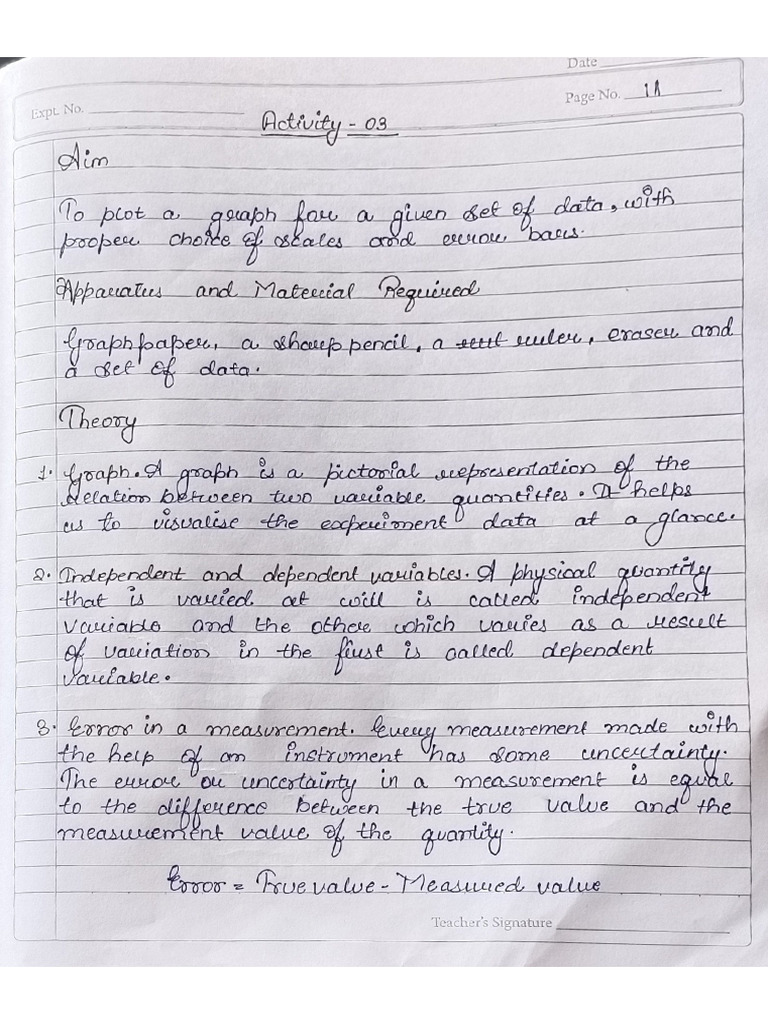 Date
Expt. No.
Page No. 11
Activity - 03
Aim
To plot a graph for a given set of data, with
proper choice of scales and error bars.
Apparatus and Material Required
Graph paper, a sharp pencil, a ruler, eraser and
a set of data.
Theory
1. Graph. A graph is a pictorial representation of the
relation between two variable quantities. It helps
us to visualise the experiment data at a glance.
2. Independent and dependent variables. A physical quantity
that is varied at will is called independent
variable and the other which varies as a result
of variation in the first is called dependent
variable.
3. Error in a measurement. Every measurement made with
the help of an instrument has some uncertainty.
The error or uncertainty in a measurement is equal
to the difference between the true value and the
measurement value of the quantity.
Error = True value - Measured value
Teacher's Signature